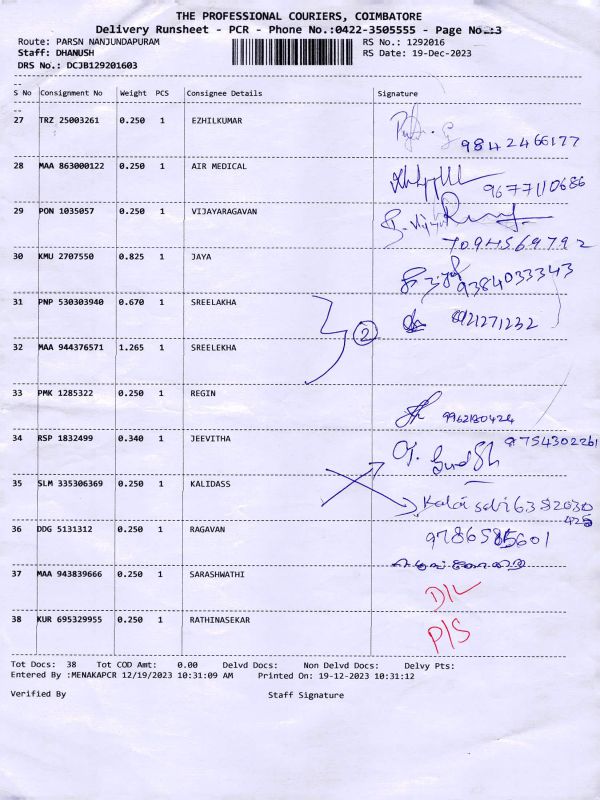 THE PROFESSIONAL COURIERS, COIMBATORE
Delivery Runsheet - PCR - Phone No.:0422-3505555 - Page No.:3
Route: PARSN NANJUNDAPURAM RS No.: 1292016
Staff: DHANUSH RS Date: 19-Dec-2023
DRS No.: DCJB129201603
S No Consignment No Weight PCS Consignee Details Signature
27 TRZ 25003261 0.250 1 EZHILKUMAR
9842466177
28 MAA 863000122 0.250 1 AIR MEDICAL
9677110686
29 PON 1035057 0.250 1 VIJAYARAGAVAN
7094569792
30 KMU 2707550 0.825 1 JAYA
9384033343
31 PNP 530303940 0.670 1 SREELAKHA
8921271232
2
32 MAA 944376571 1.265 1 SREELEKHA
33 PMK 1285322 0.250 1 REGIN
34 RSP 1832499 0.340 1 JEEVITHA
9754302261
35 SLM 335306369 0.250 1 KALIDASS
36 DDG 5131312 0.250 1 RAGAVAN
37 MAA 943839666 0.250 1 SARASHWATHI
D/L
38 KUR 695329955 0.250 1 RATHINASEKAR
P/S
Tot Docs: 38 Tot COD Amt: 0.00 Delvd Docs: Non Delvd Docs: Delvy Pts:
Entered By :MENAKAPCR 12/19/2023 10:31:09 AM Printed On: 19-12-2023 10:31:12
Verified By Staff Signature